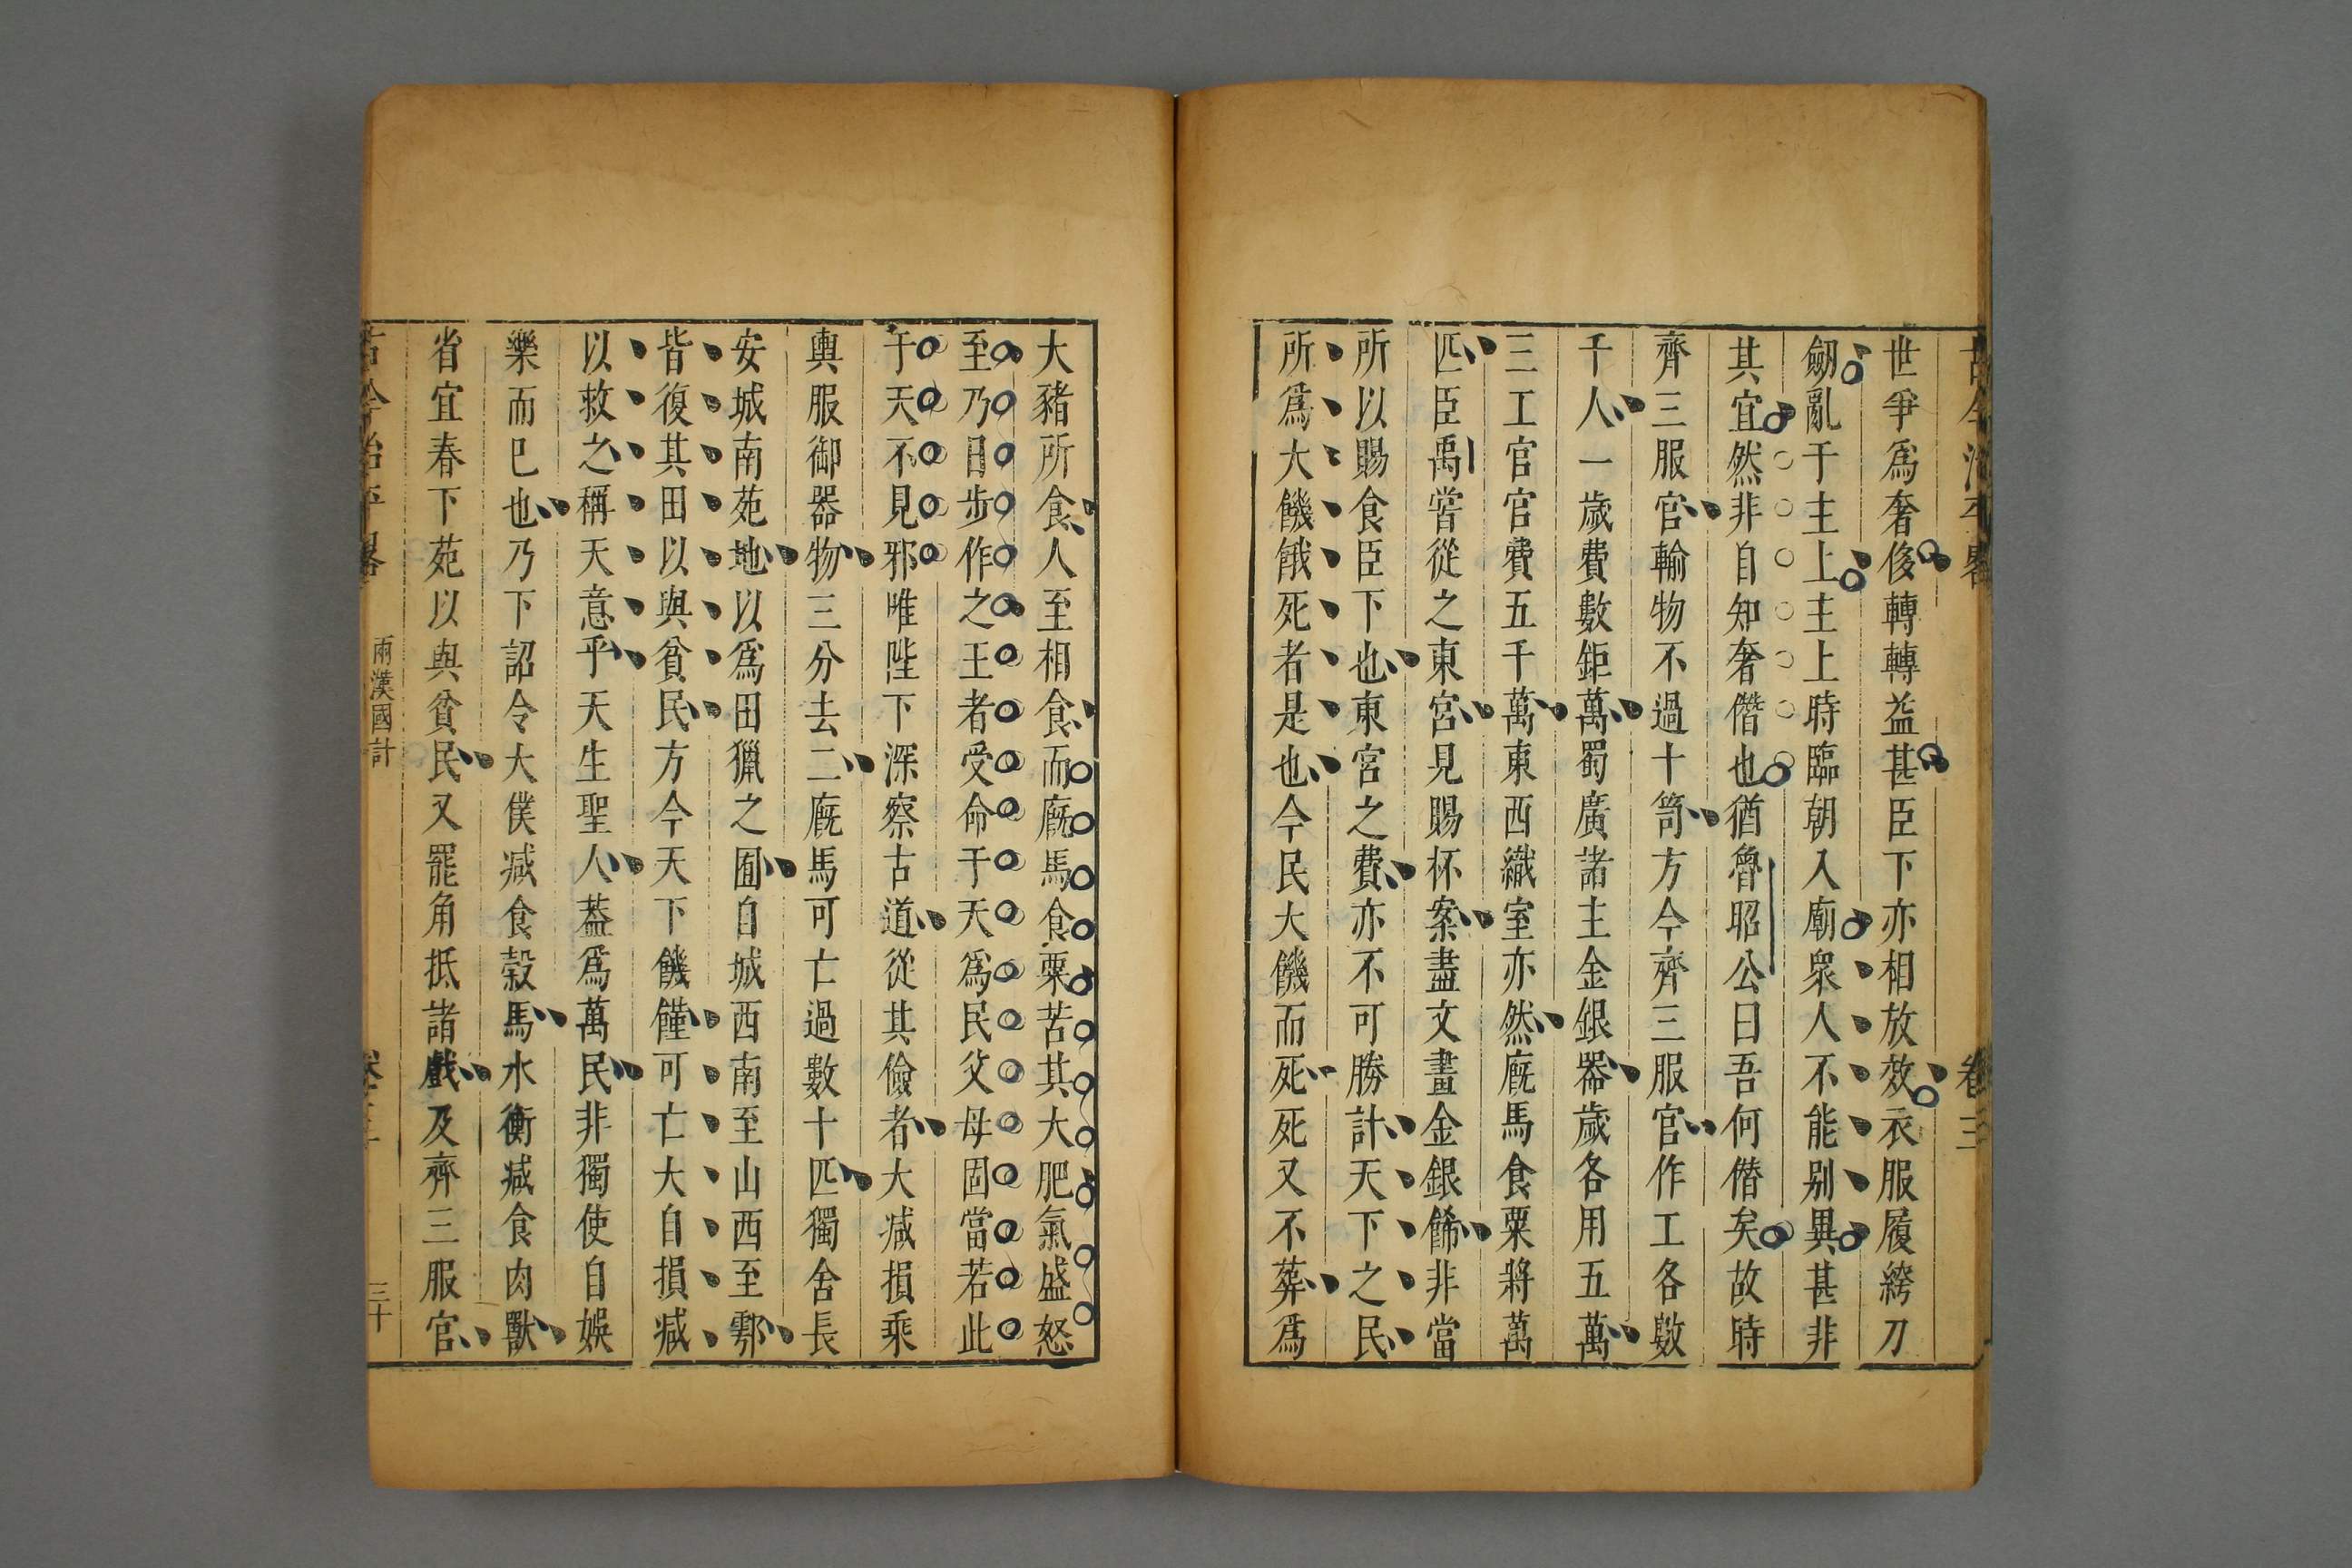 古今治平畧
卷三
世爭爲奢侈轉轉益甚臣下亦相放效衣服履絝刀
劒亂于主上主上時臨朝入廟衆人不能别異甚非
其宜然非自知奢僭也猶魯昭公曰吾何僭矣故時
齊三服官輸物不過十笥方今齊三服官作工各數
千人一歲費數鉅萬蜀廣諸主金銀器歲各用五萬
三工官官費五千萬東西織室亦然廐馬食粟將萬
匹臣禹嘗從之東宮見賜杯案盡文畫金銀餙非當
所以賜食臣下也東宮之費亦不可勝計天下之民
所爲大饑餓死者是也今民大饑而死死又不葬爲
大豬所食人至相食而廐馬食粟苦其大肥氣盛怒
至乃日步作之王者受命于天爲民父母固當若此
于天不見邪唯陛下深察古道從其儉者大减損乘
輿服御器物三分去二廐馬可亡過數十匹獨舍長
安城南苑地以爲田獵之囿自城西南至山西至鄠
皆復其田以與貧民方今天下饑饉可亡大自損减
以救之稱天意乎天生聖人葢爲萬民非獨使自娛
樂而已也乃下詔令大僕减食穀馬水衡减食肉獸
省宜春下苑以與貧民又罷角抵諸戲及齊三服官
古今治平畧
兩漢國計
卷三
三十